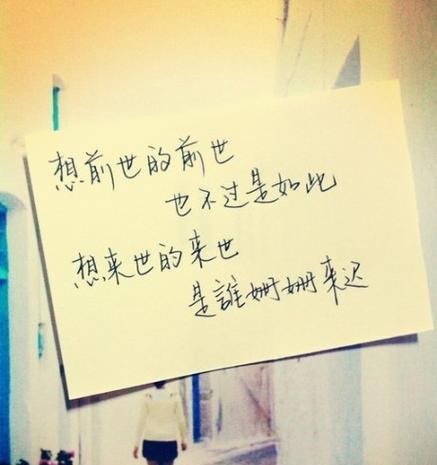 想前世的前世
也不过是如此
想来世的来世
是誰姗姗来迟